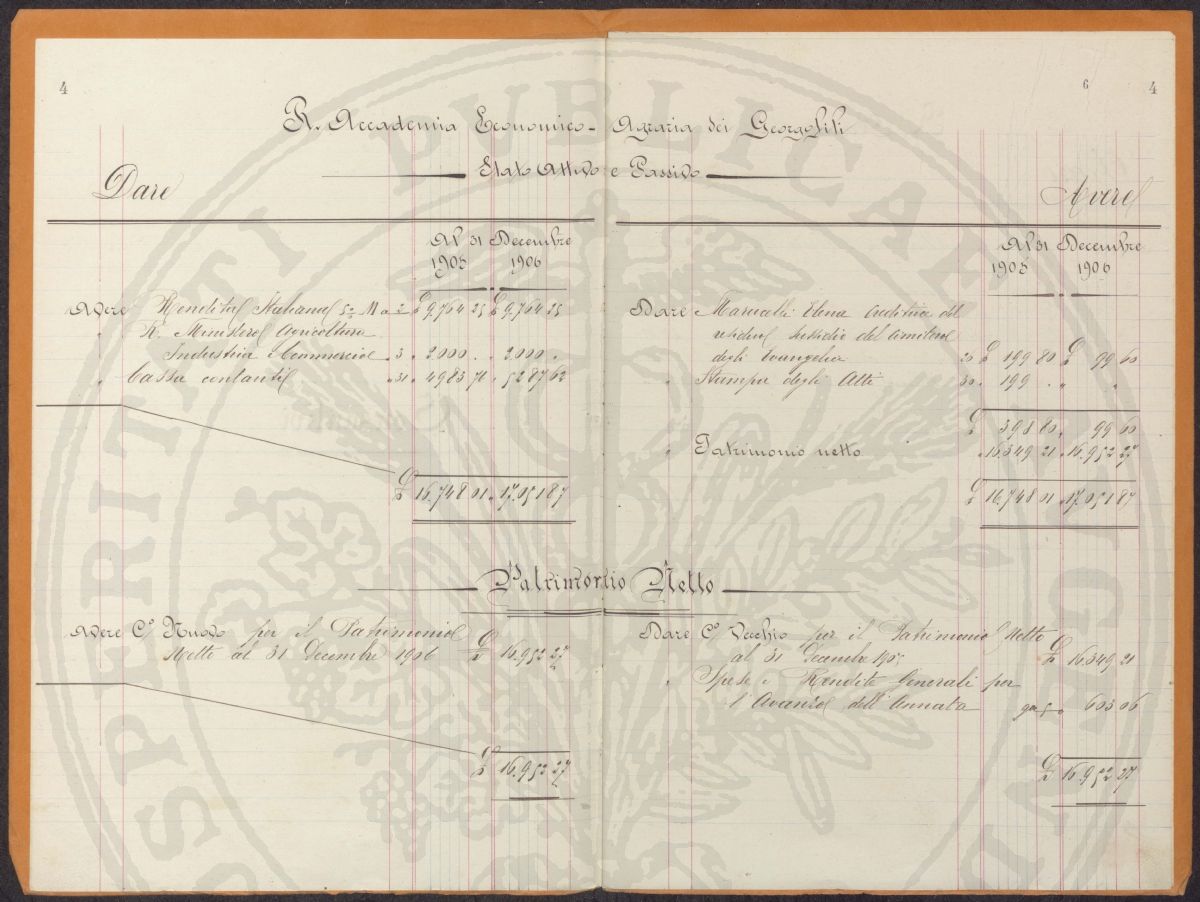 4
6 4
R. Accademia Economico - Agraria dei Georgofili
Stato Attivo e Passivo
Dare
Al 31 Decembre
1905 1906
Avere Rendita Italiana 5% M a 2 £ 9,764 25 £ 9,764 25
" R. Ministero Agricoltura
Industria e Commercio " 3 " 2000 " " 2000 "
" Cassa contanti " 31 " 4983 76 " 5287 62
£ 16.748 01 " 17.051 87
Avere
Al 31 Decembre
1905 1906
Dare Elena Creditrice del
residuo sussidio del
degli 20 £ 199 80 £ 99 60
" Stampa degli Atti 30 " 199 " " "
£ 398 80 " 99 60
" Patrimonio netto " 16349 21 " 16.952 27
£ 16.748 01 " 17.051 87
Patrimonio Netto
Avere Co. Nuovo per il Patrimonio
Netto al 31 Decembre 1906 £ 16.952 27
£ 16.952 27
Dare Co. Vecchio per il Patrimonio Netto
al 31 Decembre 1905 £ 16.349 21
" Spese e Rendite Generali per
l'Avanzo dell'Annata " 603 06
£ 16.952 27
PUBLICAE
PROSPERITATI AUGENDAE